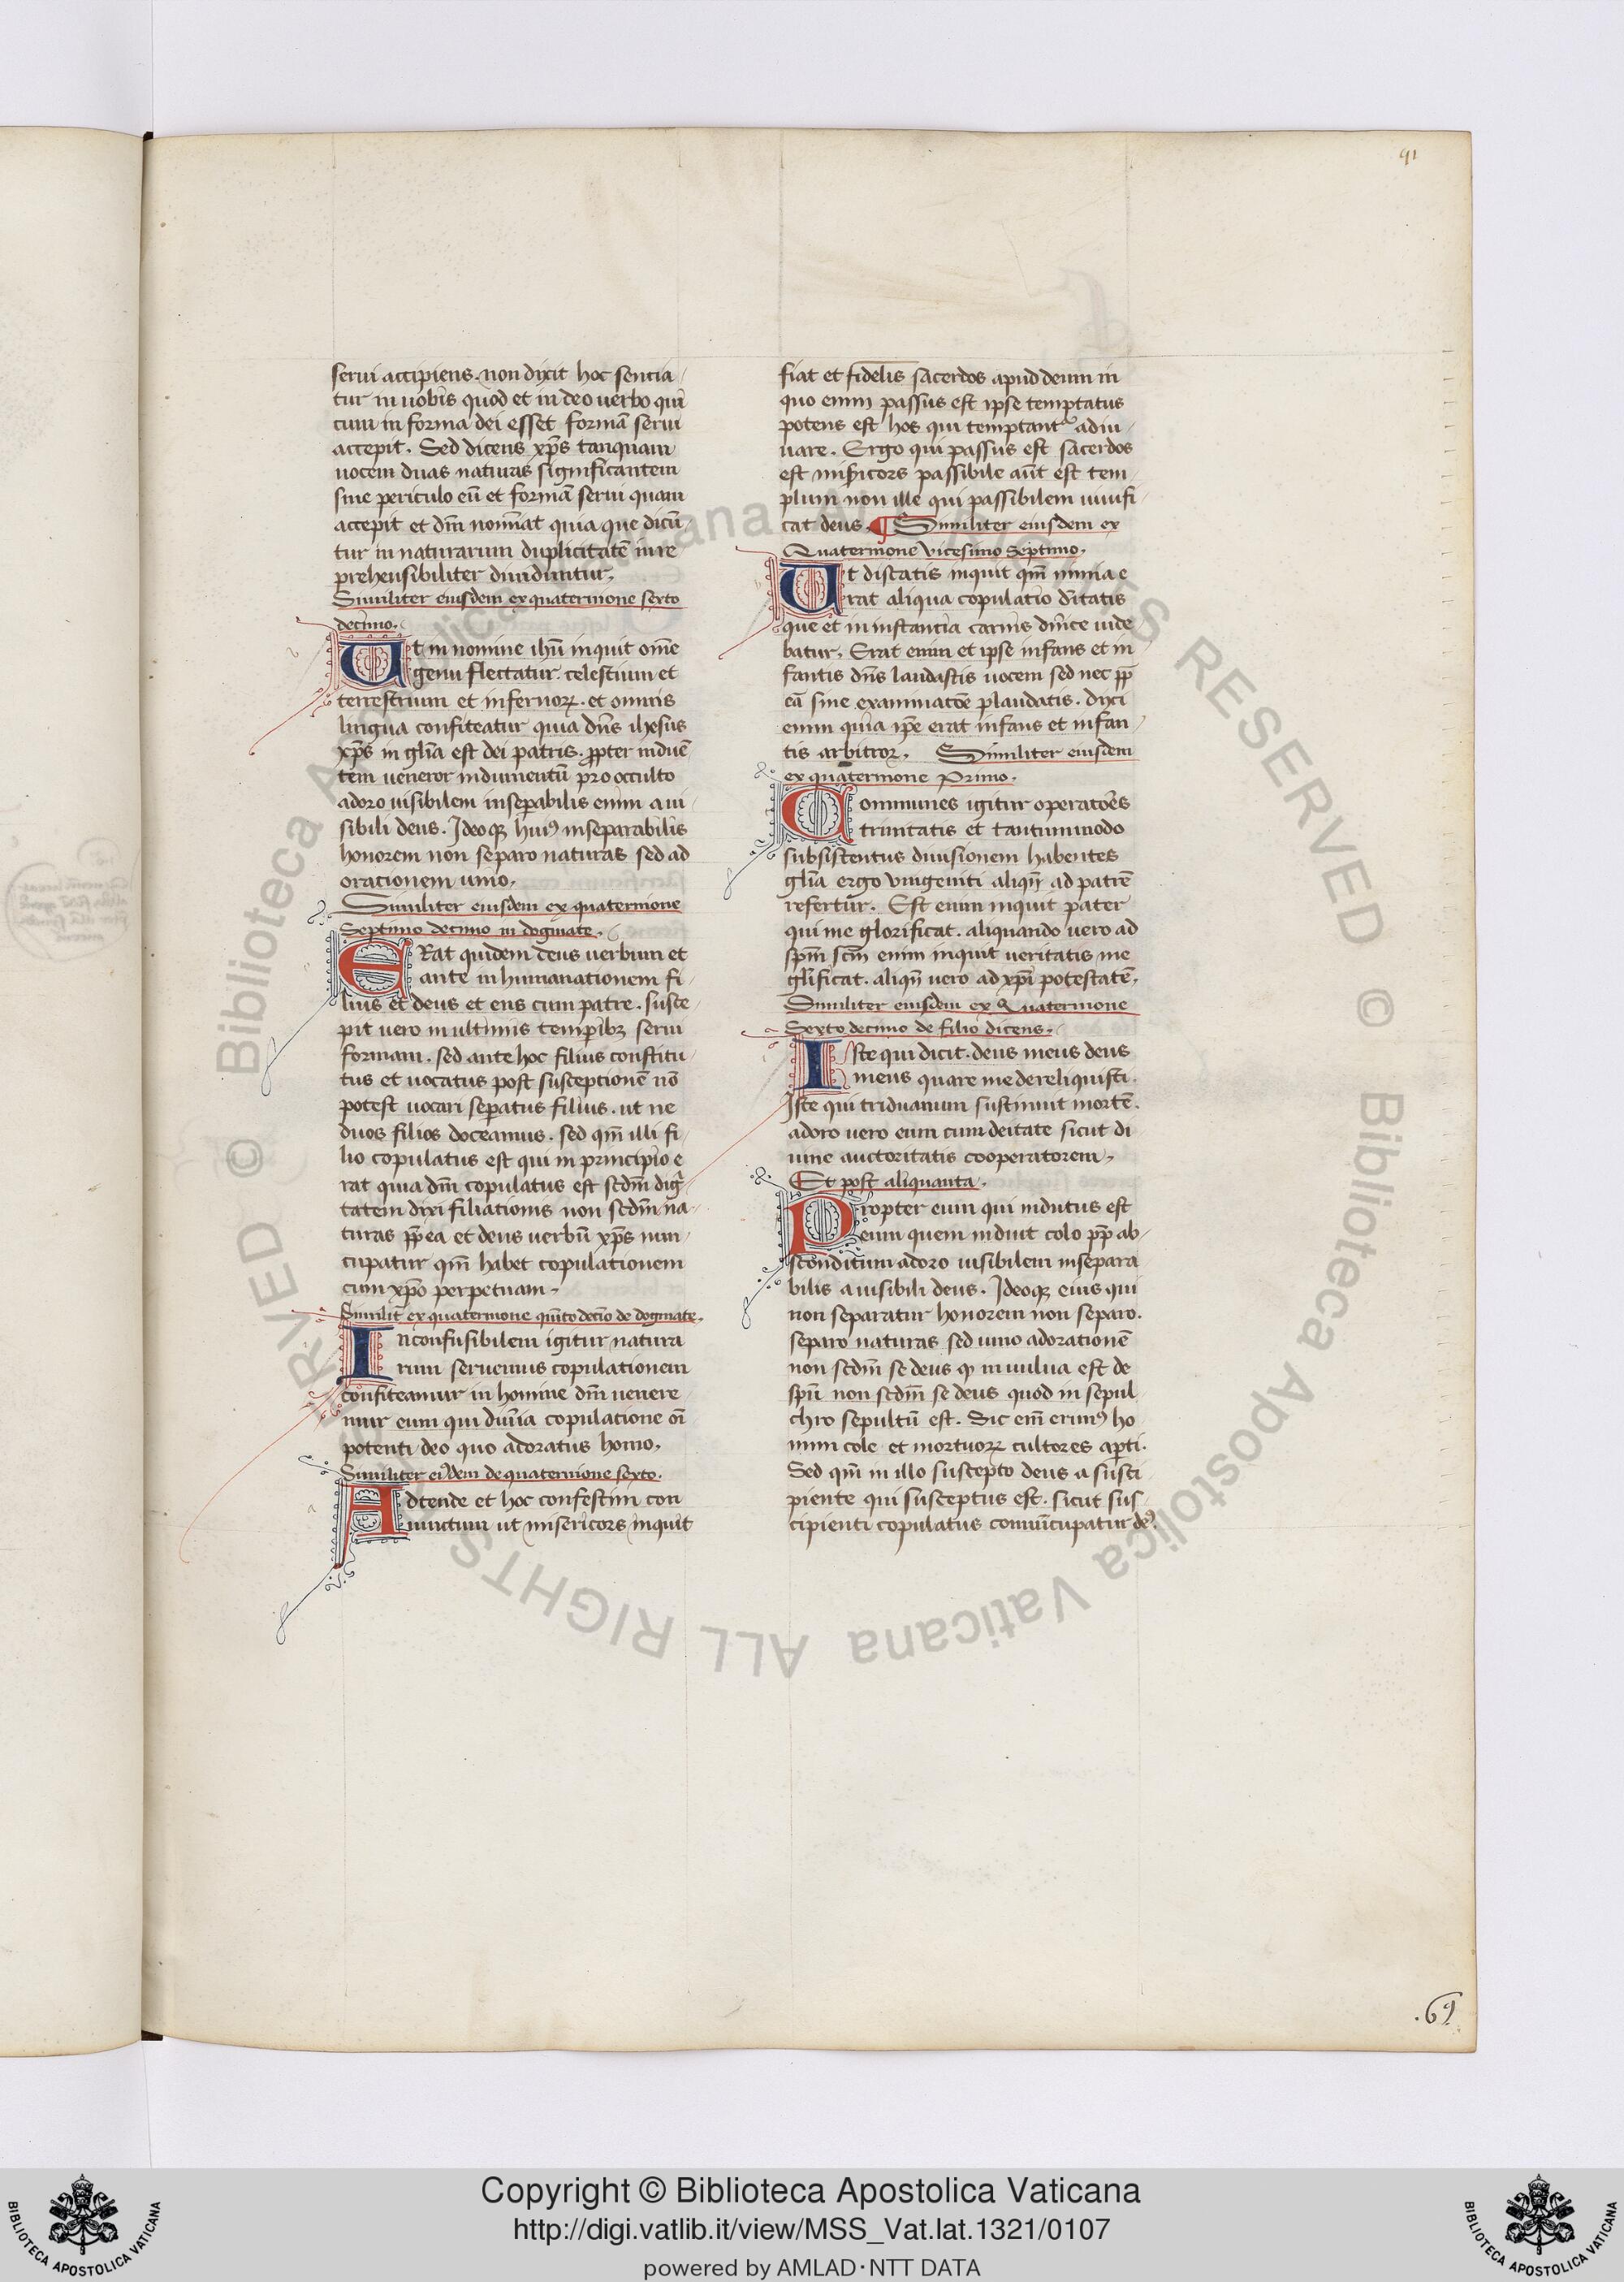 91
serui accipiens. non dixit hoc sentia
tur in uobis quod et in deo uerbo qui
cum in forma dei esset formā serui
accepit. Sed dicens xp̄s tanquam
uocem duas naturas significantem
sine periculo eū et formā serui quam
accepit et dm̄ noīnat quia que dicū
tur in naturarum duplicitatē in re
prehensibiliter diuiduntur.
Similiter eiusdem ex quaternione sexto
decimo.
Ut in nomine ihū inquit om̄e
genu flectatur. celestium et
terrestrium et infernoꝝ. et omnis
lingua confiteatur quia dn̄s ihesus
xp̄s in gl̄ia est dei patris. ꝓpter induē
tem ueneror indumentū pro occulto
adoro uisibilem inseꝑabilis enim a ui
sibili deus. Ideoqꝫ huiꝰ inseparabilis
honorem non separo naturas sed ad
orationem unio.
Similiter eiusdem ex quaternione
septimo decimo in dogmate.
ERat quidem deus uerbum et
ante in humanationem fi
lius et deus et ens cum patre. susce
pit uero in ultimis temꝑibꝫ serui
formam. sed ante hoc filius constitu
tus et uocatus post susceptionē nō
potest uocari seꝑatus filius. ut ne
duos filios doceamus. sed qm̄ illi fi
lio copulatus est qui in principio e
rat quia dm̄ copulatus est scdm̄ dig
tatem dixi filiationis non scdm̄ na
turas ꝓp̄ ea et deus uerbū xp̄s nun
cupatur qm̄ habet copulationem
cum xp̄o perpetuam.
Similit̄ ex quaternione qūito decīo de dogmate.
Inconfusibilem igitur natura
rum seruemus copulationem
confiteamur in homine dm̄ uenere
mur eum qui diuīa copulatione oī
potenti deo quo adoratus homo.
Similiter eiꝰdem de quaternione sexto.
Adtende et hoc confestim con
iunctum ut misericors inquit
fiat et fidelis sacerdos apud deum in
quo enim passus est ipse temptatus
potens est hos qui temptantᷣ adiu
uare. Ergo qui passus est sacerdos
est mis̄icors passibile aūt est tem
plum non ille qui passibilem uiuifi
cat deus. ¶ Similiter eiusdem ex
Quaternione vicesimo Septimo.
Ut discatis inquit qm̄ nimia e
rat aliqua copulatio d̄itatis
que et in instantia carnis dn̄ice uide
batur. Erat enim et ipse infans et in
fantis dn̄s laudastis uocem sed nec ꝓp̄
eā sine examinatōe plaudatis. dixi
enim quia ip̄e erat infans et infan
tis arbitror. Similiter eiusdem
ex quaternione Primo.
Communes igitur operatoēs
trinitatis et tantummodo
subsistentus diuisionem habentes
gl̄ia ergo vnigeniti aliqn̄ ad patrē
refertur. Est enim inquit pater
qui me glorificat. aliquando uero ad
spm̄ scm̄ enim inquit ueritatis me
gl̄ificat. aliqn̄ uero ad xp̄i potestatē.
Similiter eiusdem ex Quaternione
Sexto decimo de filio dicens.
Iste qui dicit. deus meus deus
meus quare me dereliquisti.
Iste qui triduanum sustinuit mortē.
adoro uero eum cum deitate sicut di
uine auctoritatis cooperatorem.
Et post aliquanta.
Propter eum qui indutus est
eum quem induit colo ꝓp̄ ab
sconditum adoro uisibilem insepara
bilis a uisibili deus. Ideoqꝫ eius qui
non separatur honorem non separo.
separo naturas sed unio adorationē
non scdm̄ se deus ꝙ in uulua est de
spū non scdm̄ se deus quod in sepul
chro sepultū est. Sic em̄ erimꝰ ho
mini cole et mortuoꝝ cultores aꝑti.
Sed qm̄ in illo suscepto deus a susci
piente qui susceptus est. sicut sus
cipienti copulatus connūcupatur deꝰ.
.69.
Copyright © Biblioteca Apostolica Vaticana
http://digi.vatlib.it/view/MSS_Vat.lat.1321/0107
powered by AMLAD・NTT DATA
BIBLIOTECA APOSTOLICA VATICANA
BIBLIOTECA APOSTOLICA VATICANA
© Biblioteca Apostolica Vaticana ALL RIGHTS RESERVED © Biblioteca Apostolica Vaticana ALL RIGHTS RESERVED